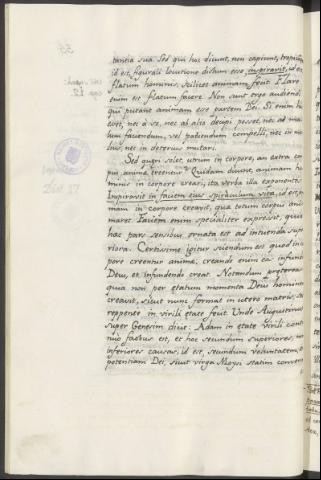 tantia sua. Sed qui hoc dicunt, non capiunt, tropicam
id est, figurali locutione dictum esse inspiravit, id est
flatum hominis, scilicet animam, fecit. Flare
enim est flatum facere. Non sunt ergo audiendi
qui putant animam esse partem Dei. Si enim hoc
esset, nec à se, nec ab alio decipi posset, nec ad ma-
lum faciendum, vel patiendum compelli, nec in me-
lius, nec in deterius mutari.
Sed quæri solet, utrum in corpore, an extra cor-
pus anima creetur. Quidam dicunt, animam ho-
minis in corpore creari, ita verba illa exponentes
Inspiravit in faciem eius spiraculum vitæ, id est, ani-
mam in corpore creavit, quæ totum corpus ani-
maret. Faciem enim specialiter expressit, quia
hæc pars sensibus ornata est ad intuenda supe-
riora. Certissime igitur sciendum est quod in cor-
pore creentur animæ, creando enim eas infundit
Deus, et infundendo creat. Notandum præterea
quia non per ætatum momenta Deus hominem
creavit, sicut nunc format in utero matris, sed
reppente in virili ætate fecit. Unde Augustinus
super Genesim dicit: Adam in ætate virili conti-
nuo factus est, et hoc secundum superiores, non
inferiores causas, id est, secundum voluntatem, et
potentiam Dei, sicut virga Moysi statim conversa